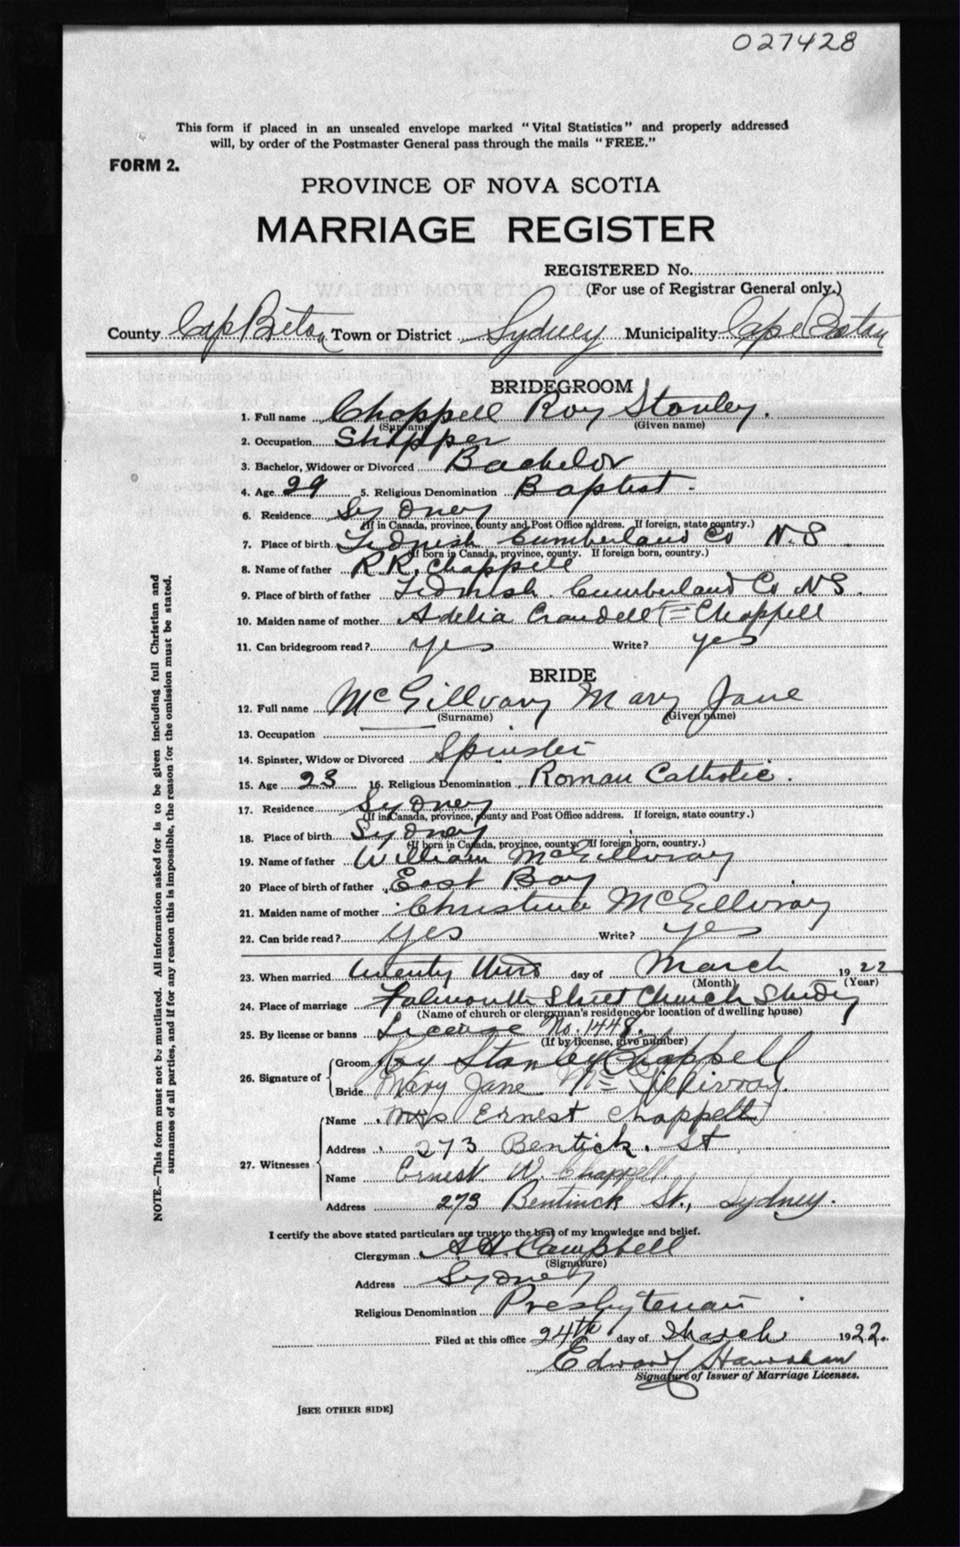 027428
This form if placed in an unsealed envelope marked "Vital Statistics" and properly addressed
will, by order of the Postmaster General pass through the mails "FREE."
FORM 2.
PROVINCE OF NOVA SCOTIA
MARRIAGE REGISTER
REGISTERED No.
(For use of Registrar General only.)
County Cap Breton Town or District Sydney Municipality Cape Breton
BRIDEGROOM
1. Full name Chappell Roy Stanley.
(Surname) (Given name)
2. Occupation Shipper
3. Bachelor, Widower or Divorced Bachelor
4. Age 29 5. Religious Denomination Baptist.
6. Residence Sydney
(If in Canada, province, county and Post Office address. If foreign, state country.)
7. Place of birth Tidnish Cumberland Co N.S
(If born in Canada, province, county. If foreign born, country.)
8. Name of father R.R. Chappell
9. Place of birth of father Tidnish. Cumberland Co NS.
10. Maiden name of mother Adelia Crandell (= Chappell
11. Can bridegroom read? yes Write? yes
BRIDE
12. Full name McGillvary Mary Jane
(Surname) (Given name)
13. Occupation
14. Spinster, Widow or Divorced Spinster
15. Age 23 16. Religious Denomination Roman Catholic.
17. Residence Sydney
(If in Canada, province, county and Post Office address. If foreign, state country.)
18. Place of birth Sydney
(If born in Canada, province, county. If foreign born, country.)
19. Name of father William McGillvray
20 Place of birth of father East Bay
21. Maiden name of mother Christina McGillvray
22. Can bride read? yes Write? yes
23. When married twenty third day of March 1922
(Month) (Year)
24. Place of marriage Falmouth Street Church Sydney
(Name of church or clergyman's residence or location of dwelling house)
25. By license or banns License No. 1448.
(If by license, give number)
26. Signature of
Groom Roy Stanley Chappell
Bride Mary Jane McGillivray.
27. Witnesses
Name Mrs Ernest Chappell
Address 273 Bentick. St
Name Ernest W. Chappell.
Address 273 Bentinck St., Sydney.
I certify the above stated particulars are true to the best of my knowledge and belief.
Clergyman A.H. Campbell
(Signature)
Address Sydney
Religious Denomination Presbyterian
Filed at this office 24th day of March 1922.
Edward
Signature of Issuer of Marriage Licenses.
[SEE OTHER SIDE]
NOTE.—This form must not be mutilated. All information asked for is to be given including full Christian and
surnames of all parties, and if for any reason this is impossible, the reason for the omission must be stated.